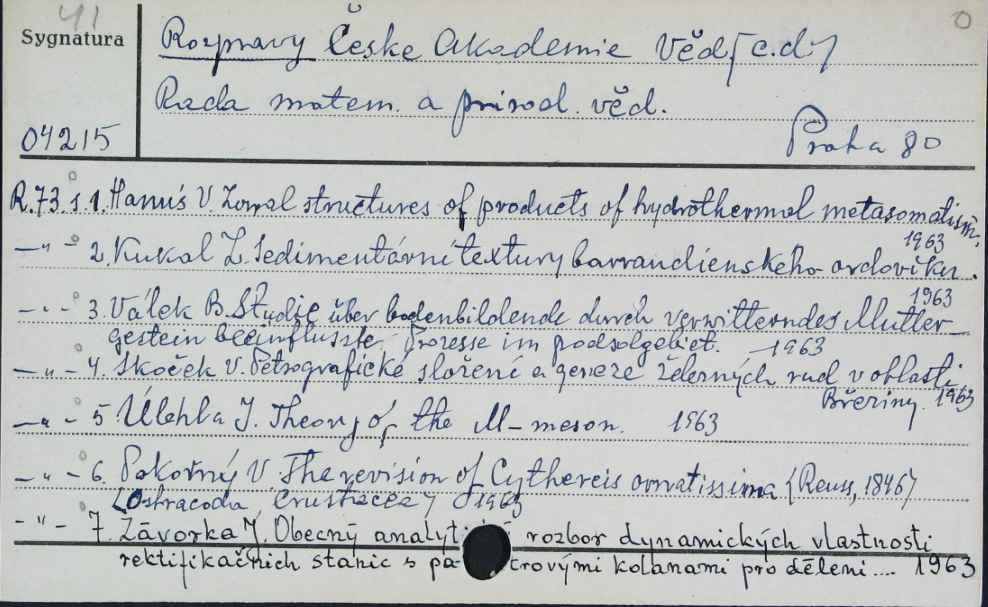 41
0
Sygnatura
Rozpravy České Akademie Věd [c.d.]
Rada matem. a přirod. věd.
04215
Praha 80
R.73. s 1. Hanuš V. Zonal structures of products of hydrothermal metasomatism.
1963
—„— 2. Kukal Z. Sedimentární textury barrandienského ordoviku.
1963
—„— 3. Válek B. Studie über bodenbildende durch verwitterndes Mutter-
gestein beeinflusste Prozesse im podsolgebiet. — 1963
—„— 4. Skoček V. Petrografické složení a geneze železných rud v oblasti
Březiny. 1963
—„— 5. Úlehla J. Theory of the M-meson. 1963
—„— 6. Pokorný V. The revision of Cythereis ornatissima (Reuss, 1846)
[Ostracoda, Crustacea] 1963
—„— 7. Závorka J. Obecný rozbor dynamických vlastností
rektifikačních stanic s kolonami pro dělení.... 1963